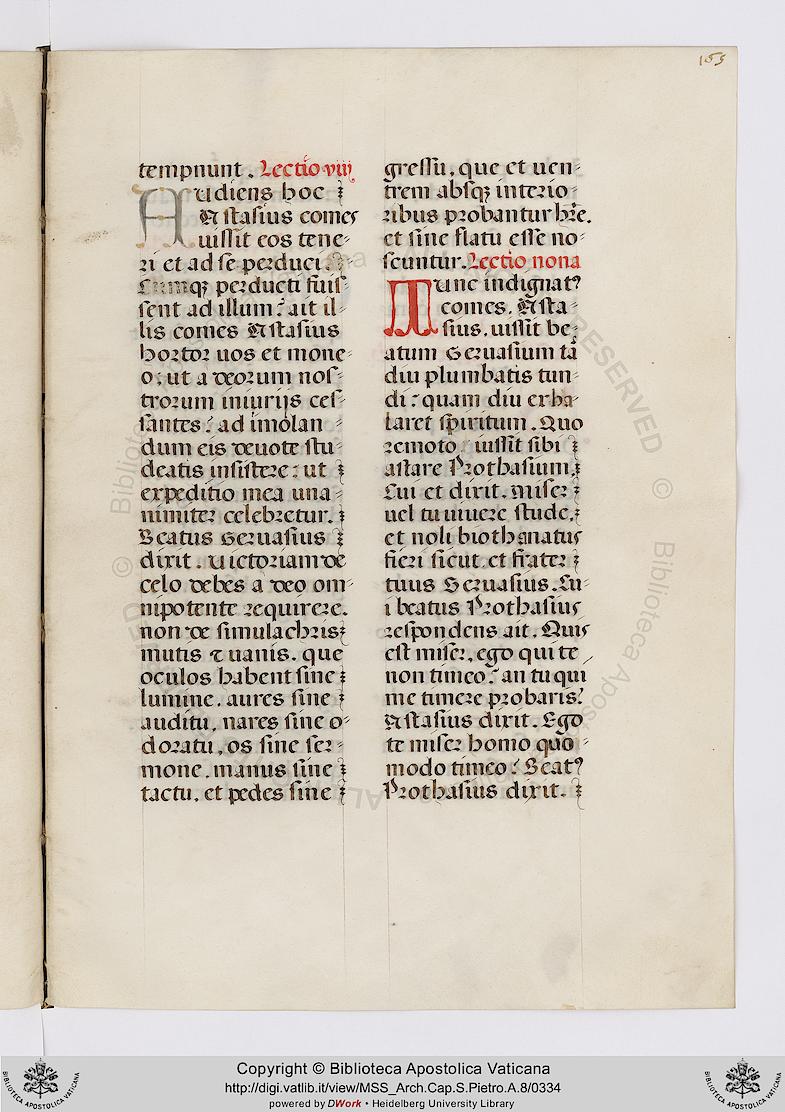 155
tempnunt. Lectio viij
Audiens hoc
Astasius comes
iussit eos tene-
ri et ad se perduci.
Cumq; perducti fuis-
sent ad illum: ait il-
lis comes Astasius
hortor uos et mone-
o: ut a deorum nos-
trorum iniurijs ces-
santes: ad imolan-
dum eis deuote stu-
deatis insistere: ut
expeditio mea una-
nimiter celebretur.
Beatus Geruasius
dixit. Uictoriam de
celo debes a deo om-
nipotente requirere.
non de simulachris
mutis ⁊ uanis. que
oculos habent sine
lumine. aures sine
auditu. nares sine o-
doratu. os sine ser-
mone. manus sine
tactu. et pedes sine
gressu. que et uen-
trem absq; interio-
ribus probantur hr̄e.
et sine flatu esse no-
scuntur. Lectio nona
Tunc indignatꝰ
comes. Asta-
sius. iussit be-
atum Geruasium tā
diu plumbatis tun-
di: quam diu exha-
laret spiritum. Quo
remoto: iussit sibi
astare Prothasium.
Cui et dixit. Miser
uel tu uiuere stude.
et noli biothanatus
fieri sicut. et frater
tuus Geruasius. Cu-
i beatus Prothasius
respondens ait. Quis
est miser. ego qui te
non timeo: an tu qui
me timere probaris?
Astasius dixit. Ego
te miser homo quo-
modo timeo? Beatꝰ
Prothasius dixit.
Copyright © Biblioteca Apostolica Vaticana
http://digi.vatlib.it/view/MSS_Arch.Cap.S.Pietro.A.8/0334
powered by DWork • Heidelberg University Library